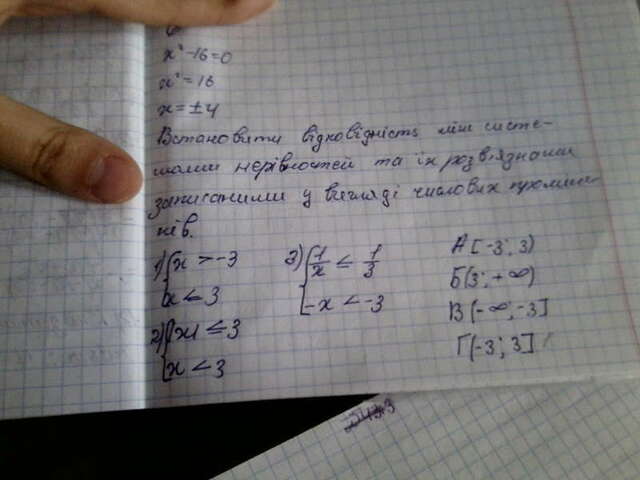 x² - 16 = 0
x² = 16
x = ±4
Встановити відповідність між систе-
мами нерівностей та їх розв'язками
записаними у вигляді числових проміж-
ків.
1) { x > -3
x < 3
2) { |x| ≤ 3
x < 3
3) { 1/x ≤ 1/3
-x < -3
А [-3; 3)
Б (3; +∞)
В (-∞; -3]
Г (-3; 3]